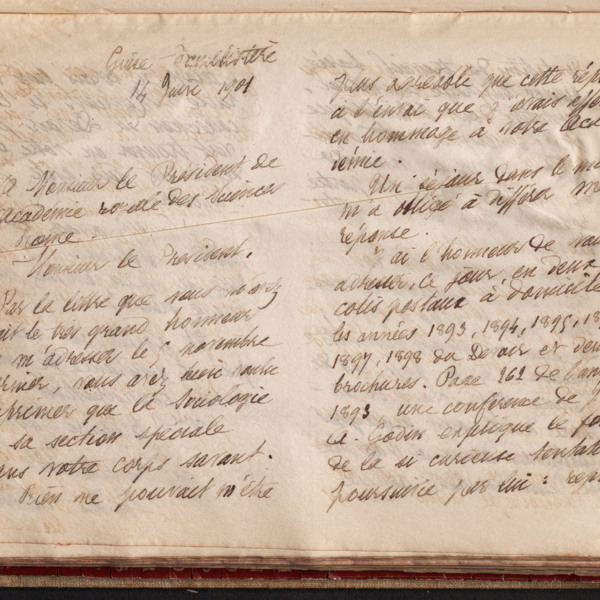 Guise Familistère
14 Janv 1901
A Monsieur le Président de
Académie royale des Sciences
Rome.
Monsieur le Président,
Par la lettre que vous m'avez
fait le très grand honneur
m'adresser le 5 novembre
dernier, vous avez bien voulu
exprimer que la Sociologie
sa section spéciale
dans votre corps savant.
Rien ne pouvait m'être
plus agréable que cette rép
à l'envoi que j'avais effec
en hommage à votre Aca
démie.
Un séjour dans le mi
m'a obligé à différer m
réponse.
J'ai l'honneur de vous
adresser, ce jour, en deux
colis postaux à domicile
les années 1893, 1894, 1895, 18
1897, 1898 du Devoir et deux
brochures. Page 262 de l'ann
1893, une conférence de
A. Godin explique le fo
de la si curieuse tentat
poursuivie par lui : rep